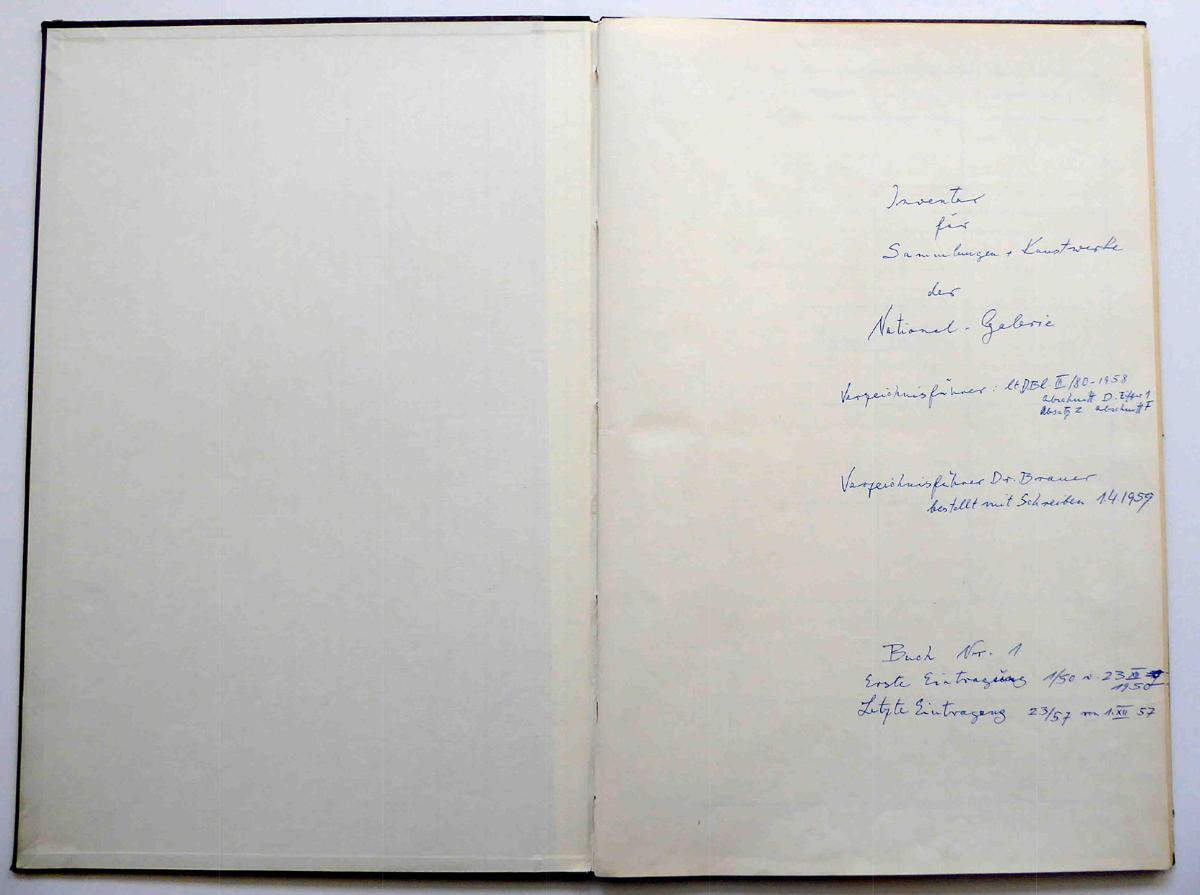 Inventar
für
Sammlungen + Kunstwerke
der
National-Galerie
Verzeichnisführer: lt. DBl. III/80-1958
Abschnitt D. Ziffer 1
Absatz 2 Abschnitt F
Verzeichnisführer Dr. Brauer
bestellt mit Schreiben 1.4.1959
Buch Nr. 1
Erste Eintragung 1/50 v. 23 XII
1950
Letzte Eintragung 23/57 vom 1. XII 57